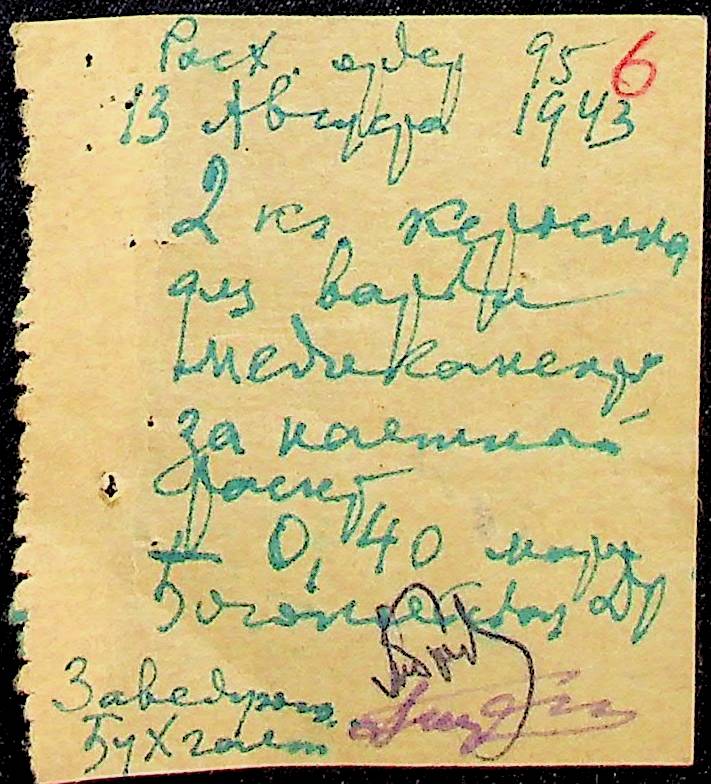 Расх. ордер 95 6
13 Августа 1943
2 кг. керосина
для варки
медикамент
за наличный
расчет
0,40 марк
Заведующ.
Бухгалт